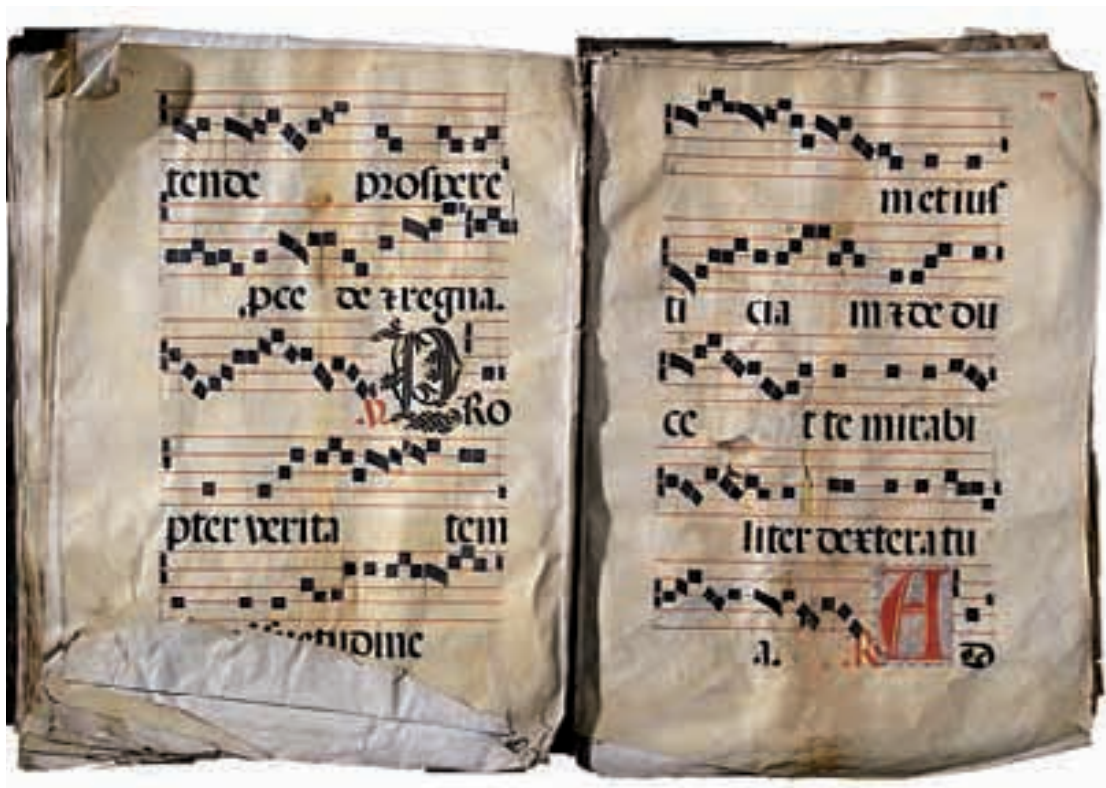 tende proſpere
.pce de ⁊ regna.
.V. PRo
pter verita tem
ſuetudine
m et iuſ
ti cia m ⁊ de du
ce t te mirabi
liter dextera tu
a. .R. A